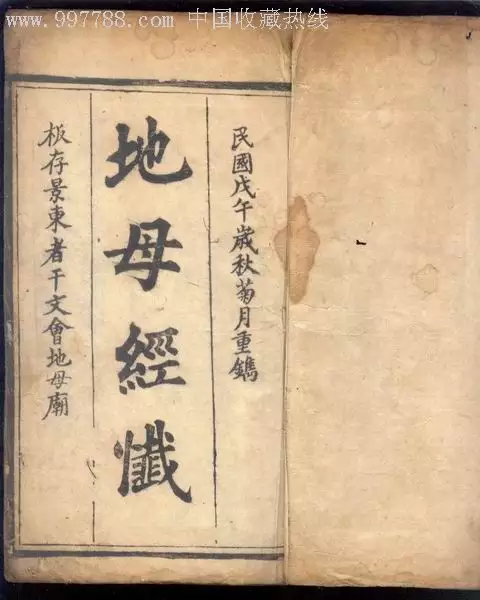 www.997788.com 中国收藏热线
民國戊午歲秋菊月重鐫
地母經懺
板存景東者干文會地母廟